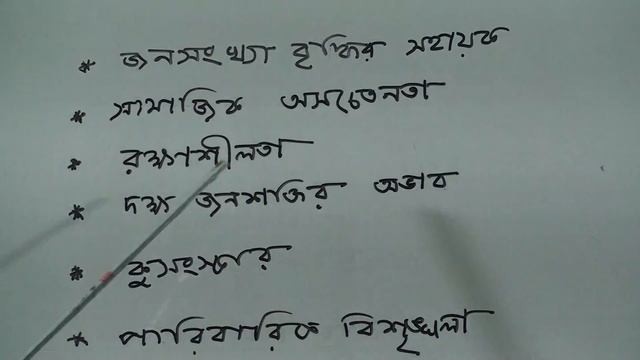 * জনসংখ্যা বৃদ্ধির সহায়ক
* সামাজিক অসচেতনতা
* রক্ষণশীলতা
* দক্ষ জনশক্তির অভাব
* কুসংস্কার
* পারিবারিক বিশৃঙ্খলা